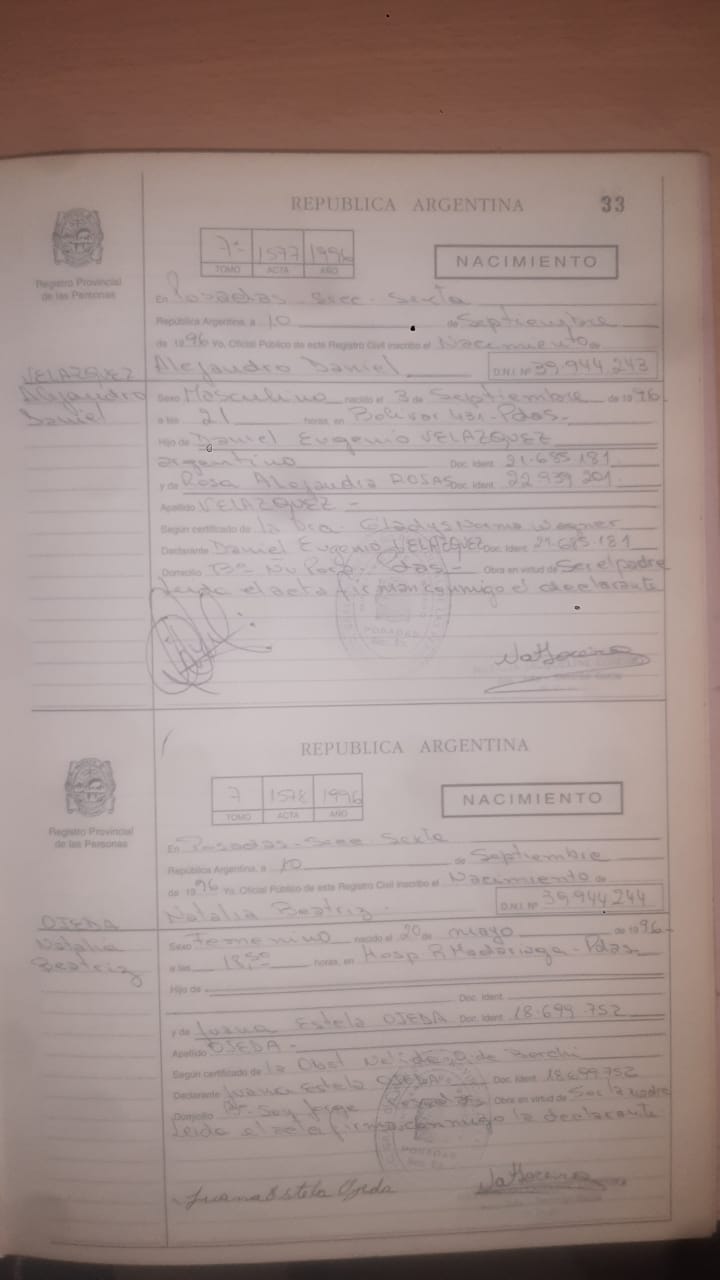 REPUBLICA ARGENTINA 33
Registro Provincial
de las Personas
7º 1577 1996
TOMO ACTA AÑO
NACIMIENTO
En Posadas - Secc - Sexta
República Argentina, a 10 de Septiembre
de 1996 Yo, Oficial Público de este Registro Civil inscribo el Nacimiento de
Alejandro Daniel D.N.I. Nº 39.944.243
VELAZQUEZ
Alejandro
Daniel
Sexo Masculino nacido el 3 de Septiembre de 1996
a las 21 horas, en Bolivar 431 - Pdas -
Hijo de Daniel Eugenio VELAZQUEZ
argentino Doc. Ident. 21.685.181
y de Rosa Alejandra ROSAS Doc. Ident. 22.939.201
Apellido VELAZQUEZ -
Según certificado de la Dra. Gladys Norma Wagner
Declarante Daniel Eugenio VELAZQUEZ Doc. Ident. 21.685.181
Domicilio Bº - Pdas - Obra en virtud de Ser el padre
Leida el acta firman conmigo el declarante
POSADAS
REPUBLICA ARGENTINA
Registro Provincial
de las Personas
7 1578 1996
TOMO ACTA AÑO
NACIMIENTO
En Posadas - Secc Sexta
República Argentina, a 10 de Septiembre
de 1996 Yo, Oficial Público de este Registro Civil inscribo el Nacimiento de
Natalia Beatriz - D.N.I. Nº 39.944.244
OJEDA
Natalia
Beatriz
Sexo Femenino nacido el 20 de mayo de 1996
a las 18,50 horas, en Hosp R Madariaga - Pdas -
Hijo de
Doc. Ident.
y de Juana Estela OJEDA Doc. Ident. 18.699.752
Apellido OJEDA -
Según certificado de la Obst de
Declarante Juana Estela OJEDA Doc. Ident. 18.699.752
Domicilio Posadas Obra en virtud de Ser la madre
Leida el acta firma conmigo la declarante
POSADAS
Juana Estela Ojeda